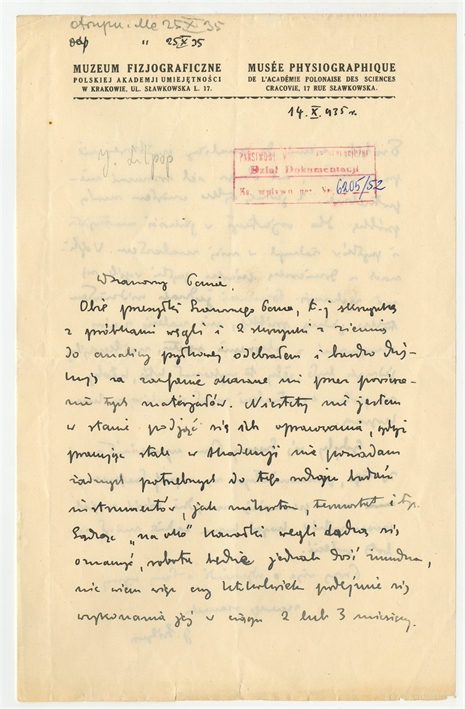 otrzym. dn. 25 X 35
odp " 25 X 35
MUZEUM FIZJOGRAFICZNE
POLSKIEJ AKADEMJI UMIEJĘTNOŚCI
W KRAKOWIE, UL. SŁAWKOWSKA L. 17.
MUSÉE PHYSIOGRAPHIQUE
DE L'ACADÉMIE POLONAISE DES SCIENCES
CRACOVIE, 17 RUE SŁAWKOWSKA.
14. X. 935 r.
J. Lilpop
PAŃSTWOWE
Dział Dokumentacji
Ks. wpływu poz. Nr. 6205/52
Szanowny Panie.
Obie przesyłki Szanownego Pana, t.j. skrzynkę
z próbkami węgli i 2 skrzynki z ziemią
do analizy pyłkowej odebrałem i bardzo dzię-
kuję za zaufanie okazane mi przez powierze-
nie tych materjałów. Niestety nie jestem
w stanie podjąć się ich opracowania, gdyż
pracując stale w Akademji nie posiadam
żadnych potrzebnych do tego rodzaju badań
instrumentów, jak mikrotom, termostat i t.p.
Sądząc „na oko" kawałki węgli dadzą się
oznaczyć, robota będzie jednak dość żmudna,
nie wiem więc czy ktokolwiek podejmie się
wykonania jej w ciągu 2 lub 3 miesięcy.